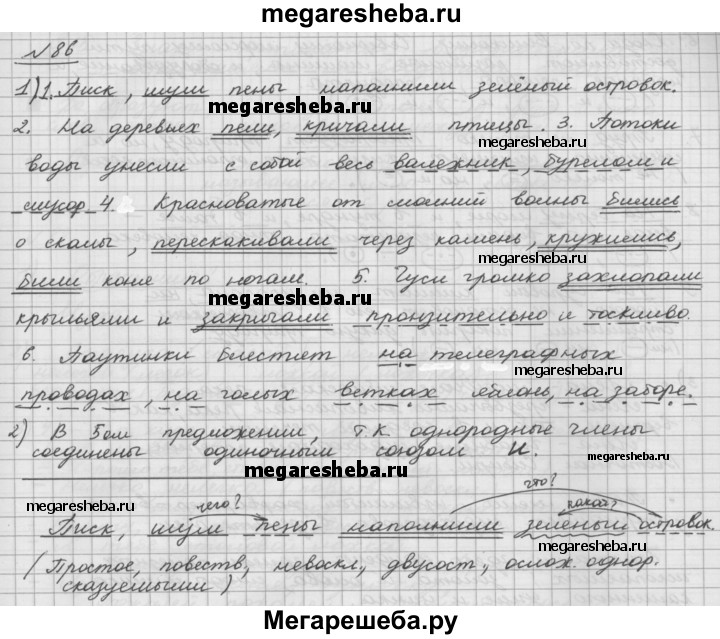 megaresheba.ru
№86
1) 1. Писк, шум пены наполнили зелёный островок.
megaresheba.ru
2. На деревьех пели, кричали птицы. 3. Потоки
megaresheba.ru
воды унесли с собой весь валежник, бурелом и
мусор 4. Красноватые от молний волны бились
megaresheba.ru
о скалы, перескакивали через камень, кружились,
били коня по ногам. 5. Гуси громко захлопали
megaresheba.ru
крыльями и закричали пронзительно и тоскливо.
6. Паутинки блестят на телеграфных
проводах, на голых ветках яблонь, на заборе.
2) В 5ом предложении, т.к. однородные члены
соединены одиночным союзом И.
megaresheba.ru
megaresheba.ru
что?
megaresheba.ru
чего? какой?
Писк, шум пены наполнили зеленый островок.
megaresheba.ru
(Простое, повеств, невоскл, двусост, ослож. однор.
сказуемыми)
Мегарешеба.ру